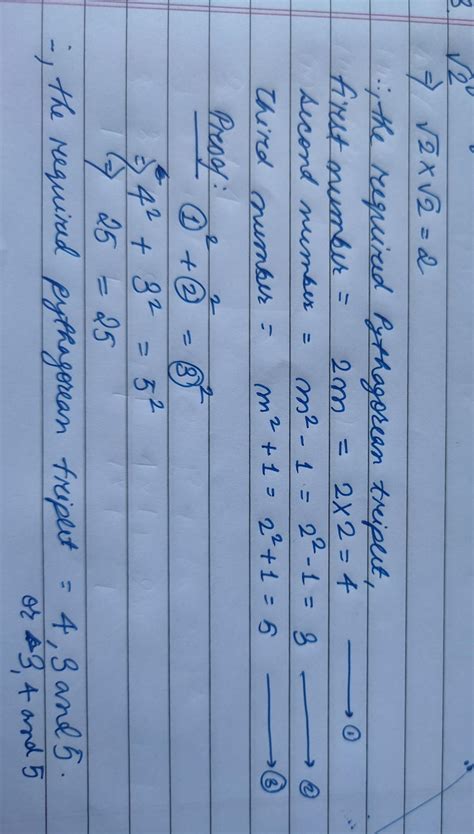 √2
⇒ √2 × √2 = 2
∴, the required Pythagorean triplet,
first number = 2m = 2×2 = 4 → ①
second number = m² - 1 = 2² - 1 = 3 → ②
third number = m² + 1 = 2² + 1 = 5 → ③
Proof: ①² + ②² = ③²
⇒ 4² + 3² = 5²
⇒ 25 = 25
∴, the required pythagorean triplet = 4, 3 and 5.
or 3, 4 and 5